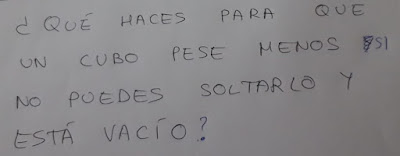 ¿ QUÉ HACES PARA QUE
UN CUBO PESE MENOS SI
NO PUEDES SOLTARLO Y
ESTÁ VACÍO?